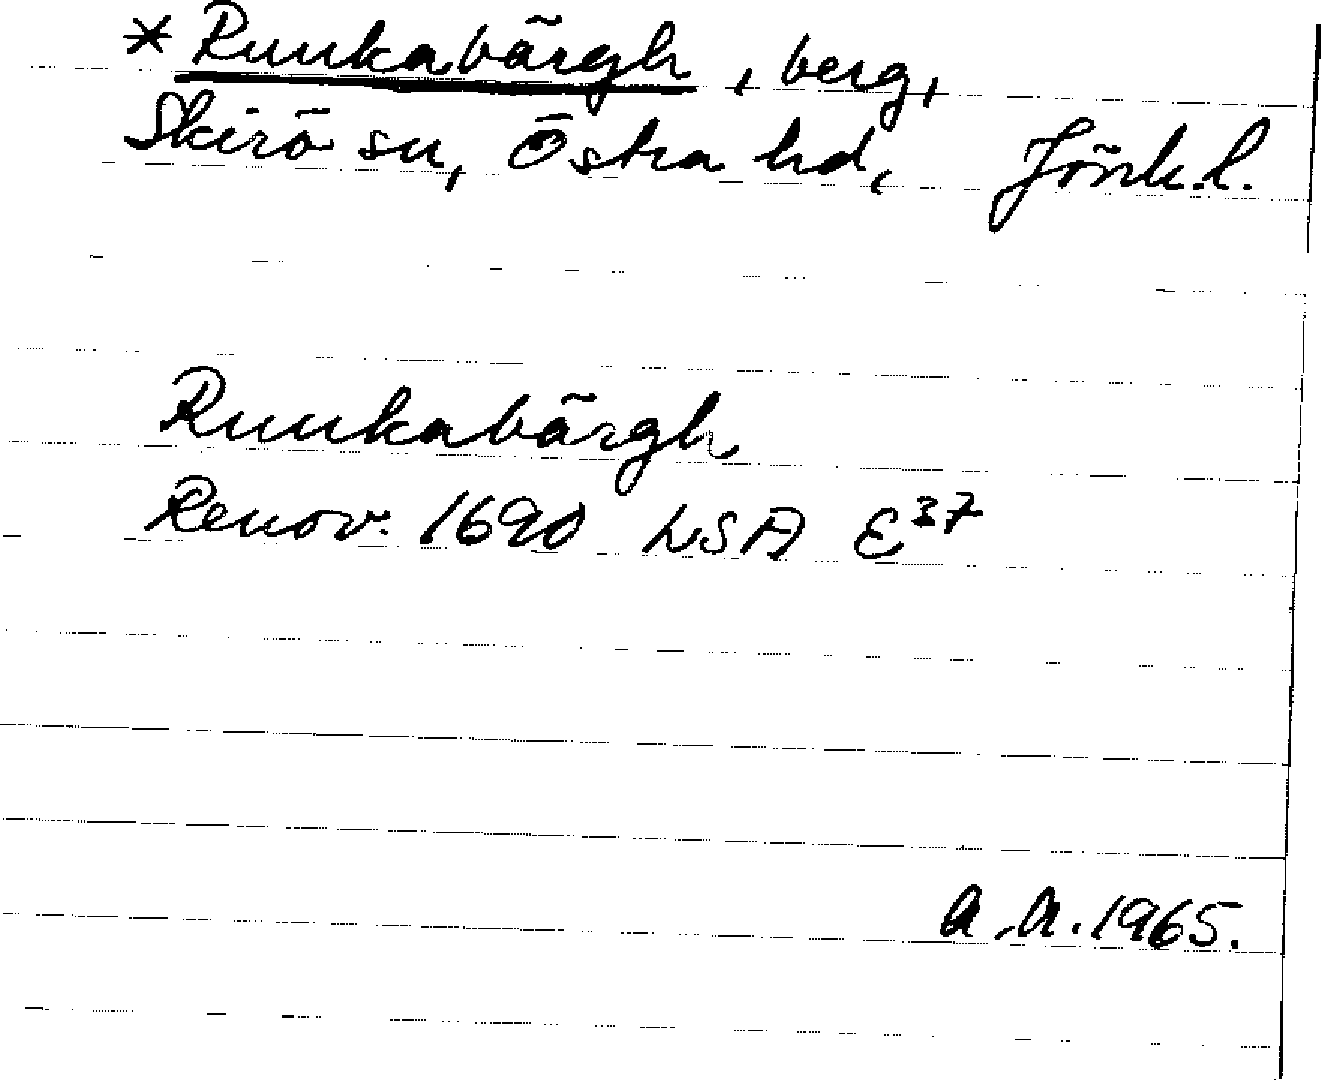 * Runkabärgh, berg,
Skirö sn, Östra hd, Jönk.l.
Runkabärgh
Renov. 1690 LSA E³⁷
A.A. 1965.